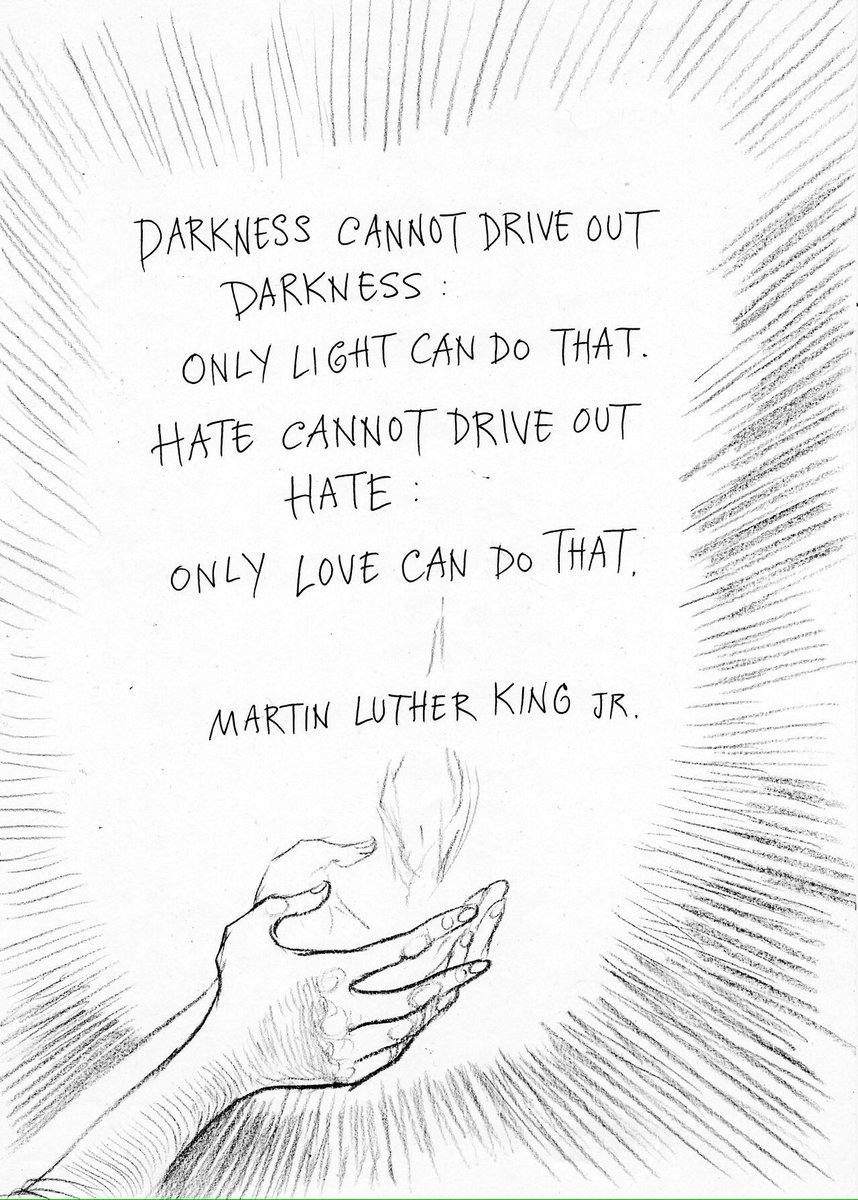 DARKNESS CANNOT DRIVE OUT
DARKNESS :
ONLY LIGHT CAN DO THAT.
HATE CANNOT DRIVE OUT
HATE :
ONLY LOVE CAN DO THAT.
MARTIN LUTHER KING JR.